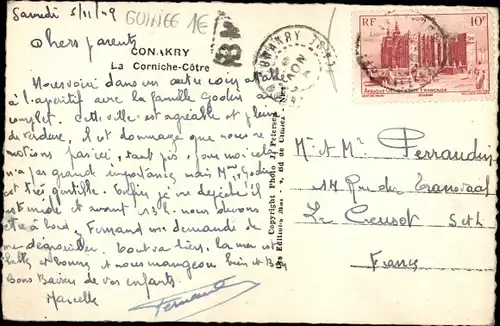 Samedi 5/11/49
GUINEE 1€
Chers parents
CONAKRY
La Corniche-Côtre
Me voici dans un autre coin attablé
à l'apéritif avec la famille Godin au
complet. Cette ville est agréable et pleine
de verdure. Il est dommage que nous ne
restions pas ici, tant pis, pour moi cela
n'a pas grande importance mais Mme Godin
est très gentille. Enfin je
est midi et avant 15h. nous devons
être à bord. Fernand me demande de
me dégrouiller. Tout va bien. La mer est
belle et bonne et nous mangeons bien et
Bons Baisers de vos enfants.
Marcelle
Fernand
Copyright Photo J.
Les Editions
CONAKRY
RF POSTES 10F
AFRIQUE OCCIDENTALE FRANÇAISE
Mr et Mme Perraudin
14 Rue du Transvaal
Le Creusot S et L
France